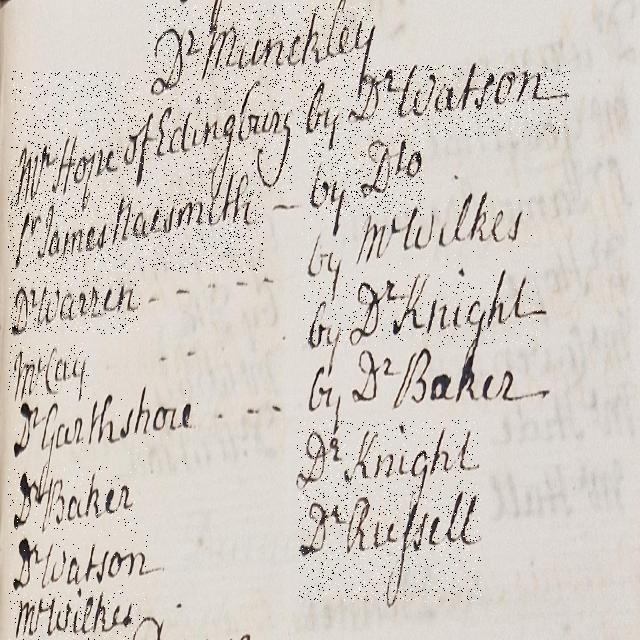 Dr Munckley
Mr Hope of Edingburg by Dr Watson
Sr James Naesmith - by Dto
Dr Warren - - - - - by Mr Wilkes
Mr Cay by Dr Knight
Dr Garthshore - - - by Dr Baker
Dr Baker Dr Knight
Dr Watson Dr Russell
Mr Wilkes